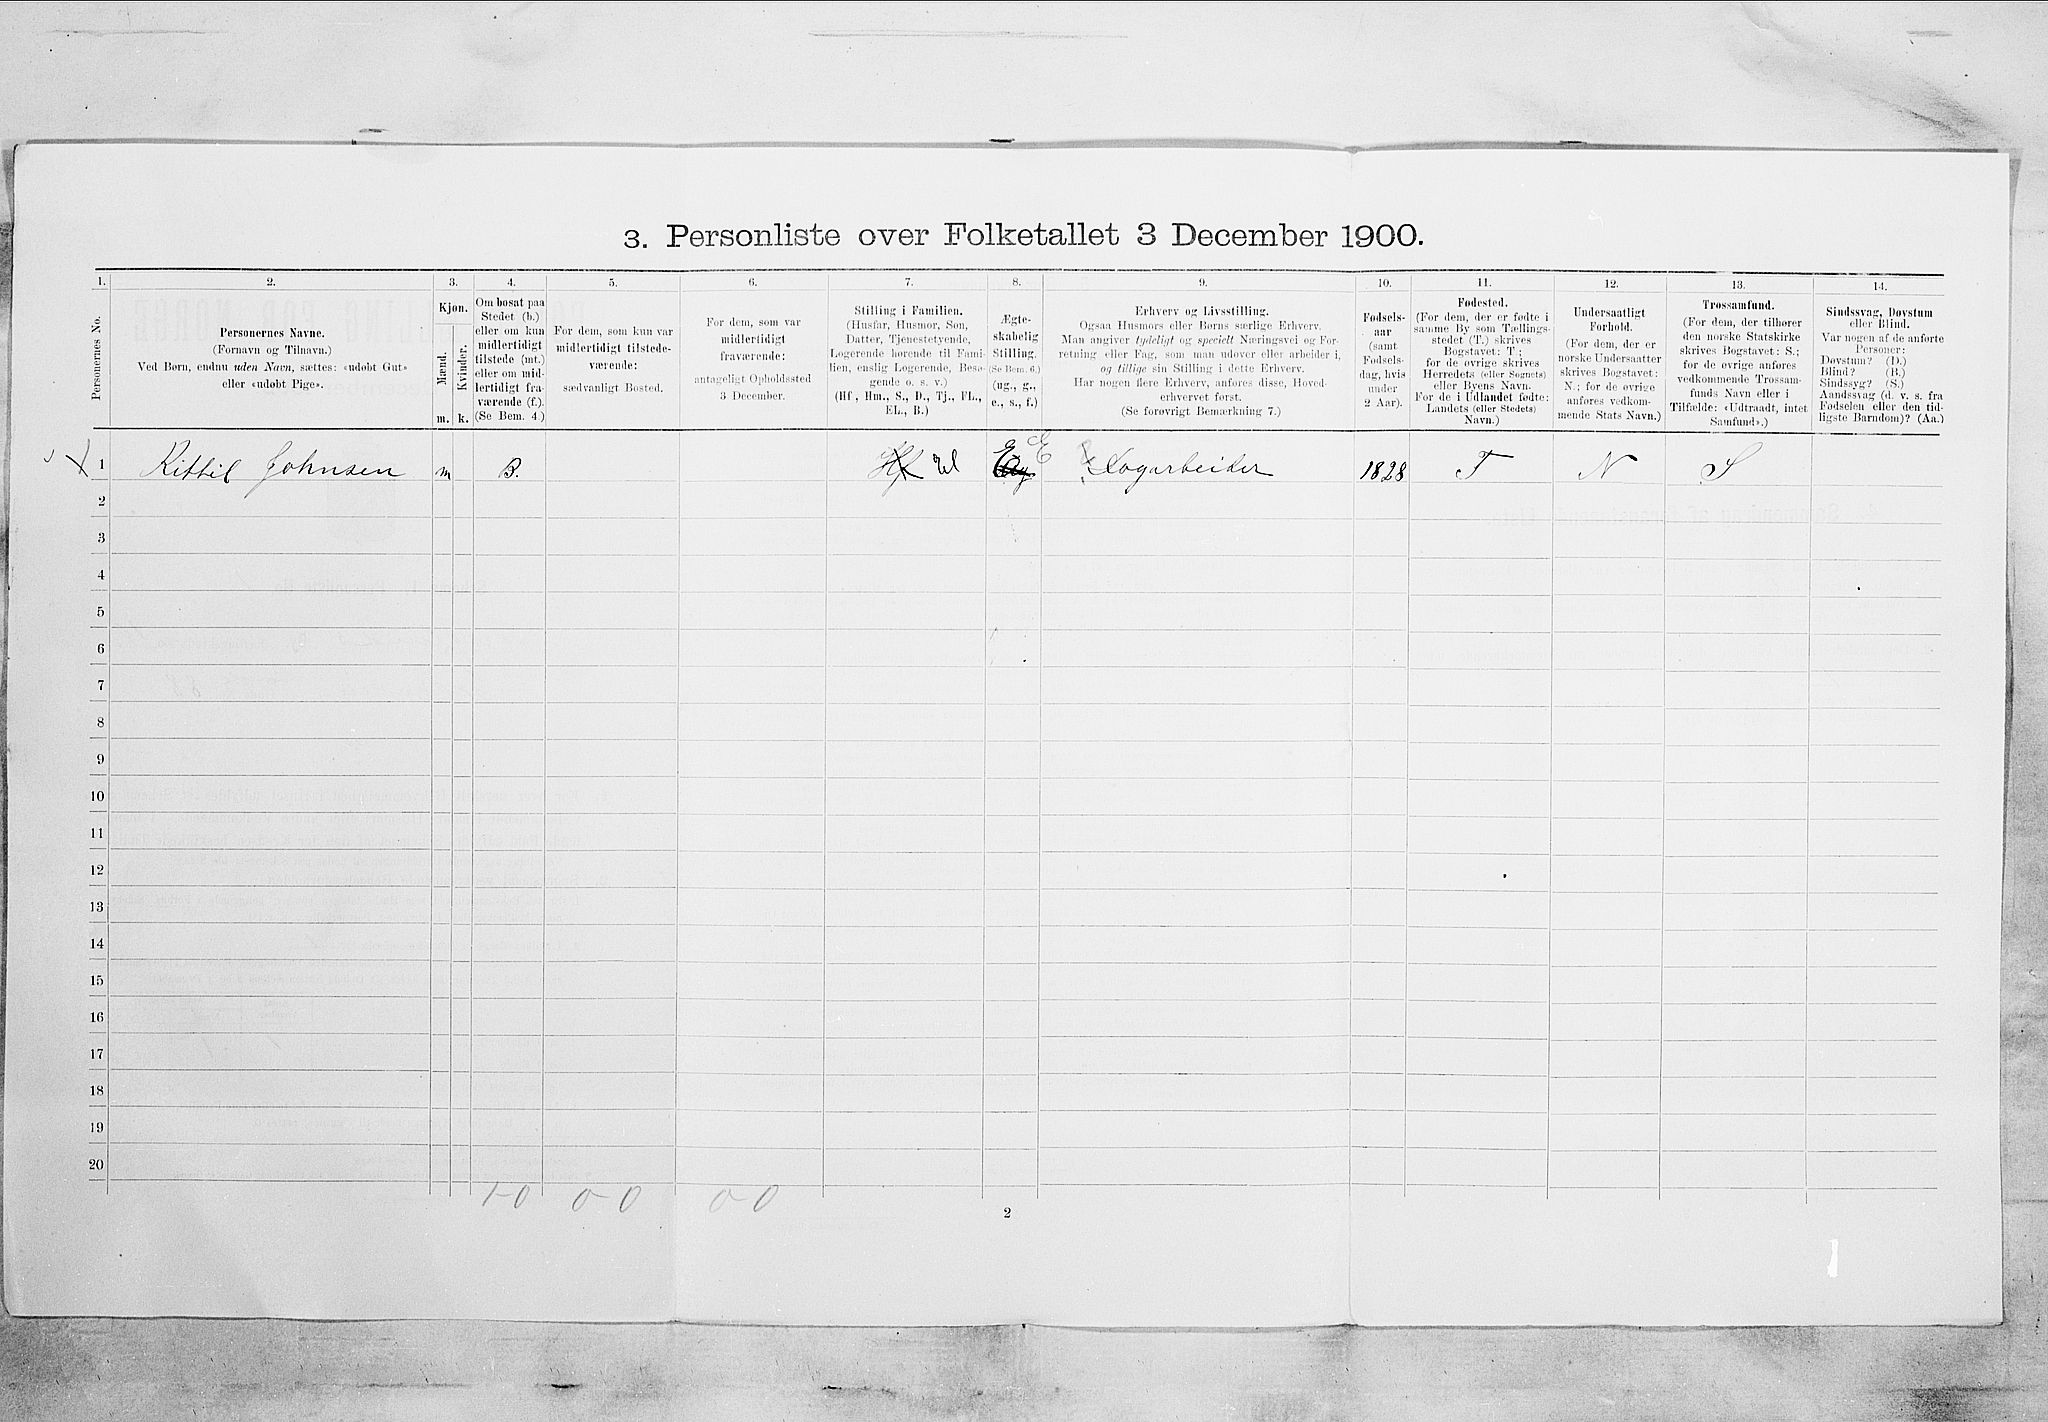 3. Personliste over Folketallet 3 December 1900.
1. 2. 3. 4. 5. 6. 7. 8. 9. 10. 11. 12. 13. 14.
Personernes No.
Personernes Navne.
(Fornavn og Tilnavn.)
Ved Børn, endnu uden Navn, sættes: «udøbt Gut»
eller «udøbt Pige».
Kjøn.
Mænd.
Kvinder.
m. k.
Om bosat paa
Stedet (b.)
eller om kun
midlertidigt
tilstede (mt.)
eller om mid-
lertidigt fra-
værende (f.).
(Se Bem. 4.)
For dem, som kun var
midlertidigt tilstede-
værende:
sædvanligt Bosted.
For dem, som var
midlertidigt
fraværende:
antageligt Opholdssted
3 December.
Stilling i Familien.
(Husfar, Husmor, Søn,
Datter, Tjenestetyende,
Logerende hørende til Fami-
lien, enslig Logerende, Besø-
gende o. s. v.)
(Hf., Hm., S., D., Tj., FL.,
EL., B.)
Ægte-
skabelig
Stilling.
(Se Bem. 6.)
(ug., g.,
e., s., f.)
Erhverv og Livsstilling.
Ogsaa Husmors eller Børns særlige Erhverv.
Man angiver tydeligt og specielt Næringsvei og For-
retning eller Fag, som man udøver eller arbeider i,
og tillige sin Stilling i dette Erhverv.
Har nogen flere Erhverv, anføres disse, Hoved-
erhvervet først.
(Se forøvrigt Bemærkning 7.)
Fødsels-
aar
(samt
Fødsels-
dag, hvis
under
2 Aar).
Fødested.
(For dem, der er fødte i
samme By som Tællings-
stedet (T.) skrives
Bogstavet: T.;
for de øvrige skrives
Herredets (eller Sognets)
eller Byens Navn.
For de i Udlandet fødte:
Landets (eller Stedets)
Navn.)
Undersaatligt
Forhold.
(For dem, der er
norske Undersaatter
skrives Bogstavet:
N.; for de øvrige
anføres vedkom-
mende Stats Navn.)
Trossamfund.
(For dem, der tilhører
den norske Statskirke
skrives Bogstavet: S.;
for de øvrige anføres
vedkommende Trossam-
funds Navn eller i
Tilfælde: «Udtraadt, intet
Samfund».)
Sindssvag, Døvstum
eller Blind.
Var nogen af de anførte
Personer:
Døvstum? (D.)
Blind? (B.)
Sindssyg? (S.)
Aandssvag (d. v. s. fra
Fødselen eller den tid-
ligste Barndom)? (Aa.)
1 Kittil Johnsen m B. Hf El E E Logarbeider 1828 T N S
2
3
4
5
6
7
8
9
10
11
12
13
14
15
16
17
18
19
20
1-0 0-0 0-0
2